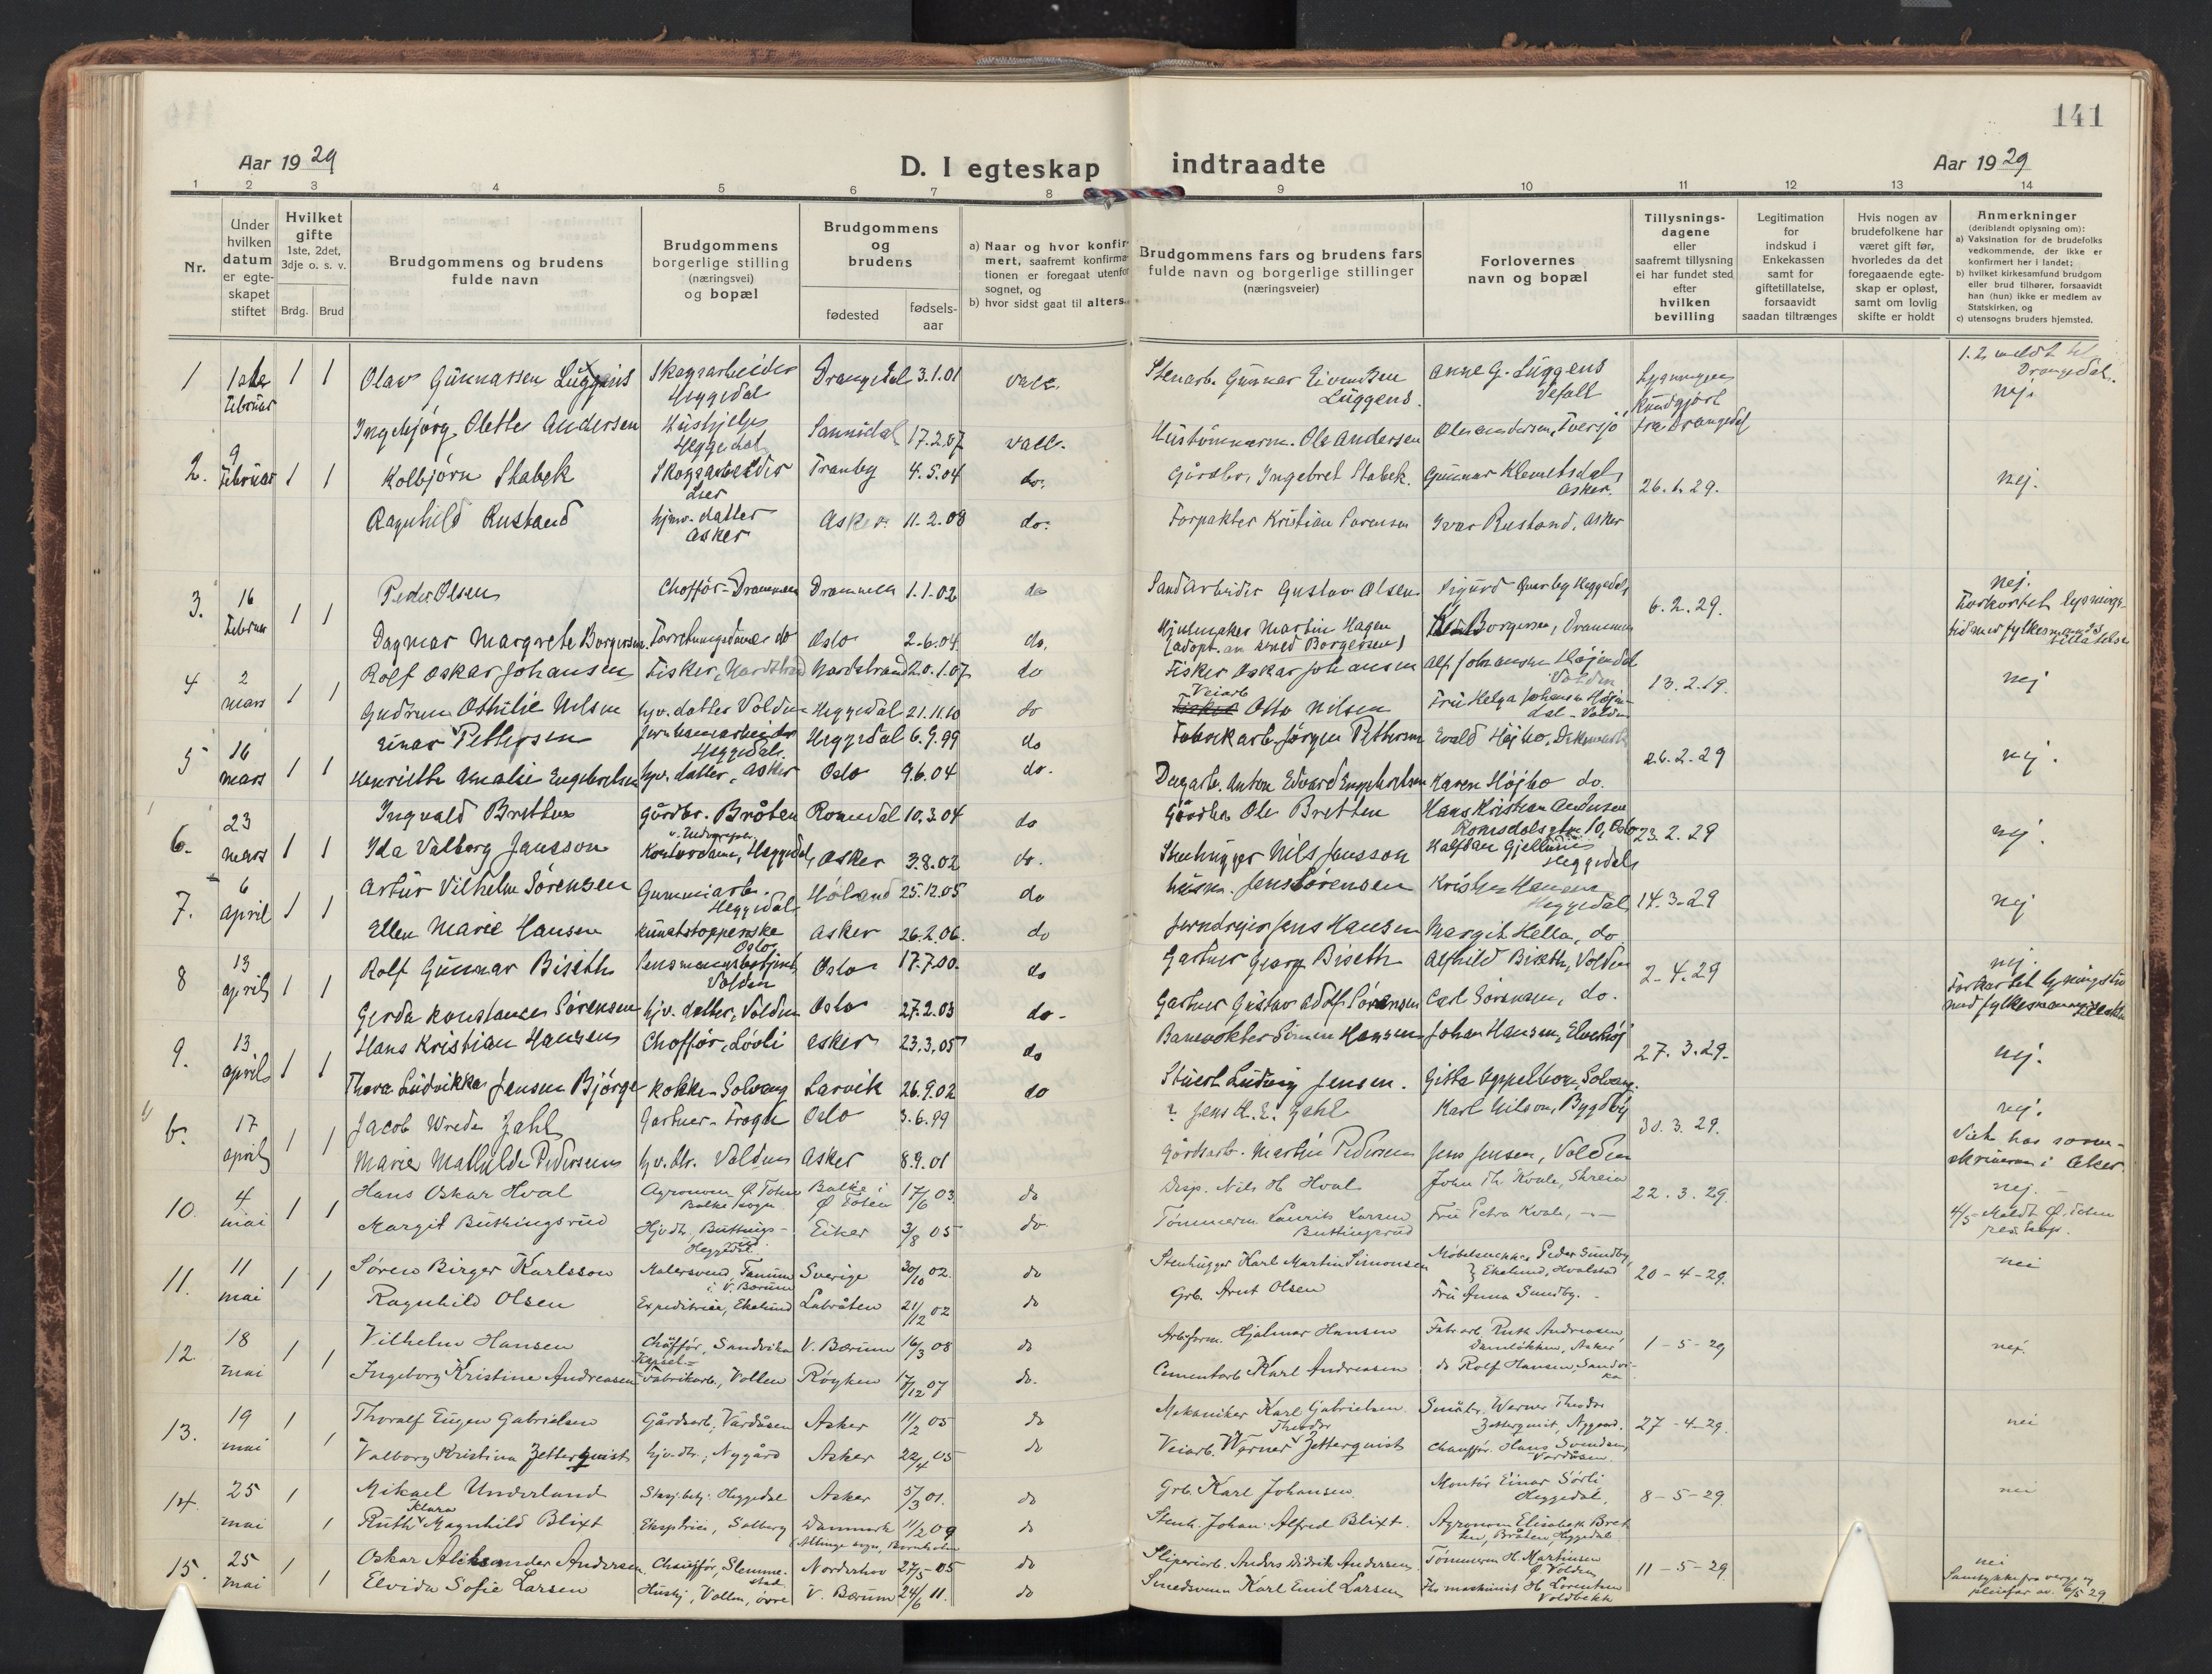 141
Aar 1929
D. I egteskap indtraadte
Aar 1929
1 2 3 4 5 6 7 8 9 10 11 12 13 14
Nr.
Under hvilken datum er egteskapet stiftet
Hvilket gifte 1ste, 2det, 3dje o. s. v.
Brdg. Brud
Brudgommens og brudens fulde navn
Brudgommens borgerlige stilling (næringsvei) og bopæl
Brudgommens og brudens
fødested
fødsels-aar
a) Naar og hvor konfirmert, saafremt konfirmationen er foregaat utenfor sognet, og
b) hvor sidst gaat til alters.
Brudgommens fars og brudens fars fulde navn og borgerlige stillinger (næringsveier)
Forlovernes navn og bopæl
Tillysnings-dagene eller saafremt tillysning ei har fundet sted efter hvilken bevilling
Legitimation for indskud i Enkekassen samt for giftetillatelse, forsaavidt saadan tiltrænges
Hvis nogen av brudefolkene har været gift før, hvorledes da det foregaaende egteskap er opløst, samt om lovlig skifte er holdt
Anmerkninger (deriblandt oplysning om):
a) Vaksination for de brudefolks vedkommende, der ikke er konfirmert her i landet;
b) hvilket kirkesamfund brudgom eller brud tilhører, forsaavidt han (hun) ikke er medlem av Statskirken, og
c) utensogns bruders hjemsted.
1 1ste februar 1 1 Olav Gunnarsen Luggens Skogsarbeider Heggedal Drangedal 3.1.01 vacc. Stenarb. Gunnar Eivindsen Luggens. Anne G. Luggens Vefall Lysningen kundgjort fra Drangedal 1.2. meldt til Drangedal. nej.
Ingebjørg Olette Andersen Hushjelp Heggedal Sannidal 17.2.07 vacc. Hustømmerm. Ole Andersen Ole Andersen, Tversjø
2. 9 februar 1 1 Kolbjørn Stabek Skogsarbeider Lier Tranby 4.5.04 do. Gårdbr. Ingebret Stabek. Gunnar Klemetsdal, Asker. 26.1.29. nej.
Ragnhild Rustand hjemv. datter Asker Asker 11.2.08 do. Forpakter Kristian Sørensen Ivar Rustand, Asker
3. 16 februar 1 1 Peder Olsen Chofför - Drammen Drammen 1.1.02 do Sandarbeider Gustav Olsen Sigurd Heggedal 6.2.29. nej. Forkortet lysningstid med fylkesmands tillatelse
Dagmar Margrete Borgersen. Forretningsdame do Oslo 2.6.04. do. Hjulmaker Martin Hagen (adopt. av Borgersen) Borgersen, Drammen
4 2 mars 1 1 Rolf Oskar Johansen Fisker, Nordstrand Nordstrand 20.1.07 do Fisker Oskar Johansen Alf Johansen Højendal Volden 13.2.19. nej
Gudrun Othilie Nilsen hjv. datter Volden Heggedal 21.11.10 do Veiarb Otto Nilsen Fru Helga Johansen Højendal - Volden
5 16 mars 1 1 Einar Pettersen Jernbanearbeider Heggedal Heggedal 6.9.99 do Fabrikarb. Jörgen Pettersen Evald Højbo, Dikemark 26.2.29 nej.
Henriette Amalie Engebretsen hjv. datter, Asker Oslo 9.6.04 do. Dagarb. Anton Edvard Engebretsen Karen Højbo do.
6. 23 mars 1 1 Ingvald Bretten Gårdbr. Bråten Romedal 10.3.04 do Gårdbr. Ole Bretten Hans Kristian Andersen Romsdalsgtn 10, Oslo 23.2.29 nej.
Ida Valborg Jansson Kontordame, Heggedal, Asker 3.8.02 do. Stenhugger Nils Jansson Halfdan Gjellum Heggedal
7. 6 april 1 1 Artur Vilhelm Sørensen Gummiarb. Heggedal Høland 25.12.05 do husm. Jens Sørensen Kristen Hansen Heggedal 14.3.29 nej
Ellen Marie Hansen Kunststopperske Oslo Asker 26.2.06. do Jerndreier Jens Hansen Margit Hella, do
8 13 april 1 1 Rolf Gunnar Biseth Lensmannsbetjent Volden Oslo 17.7.00. do Gartner Georg Biseth Alfhild Biseth, Volden 2-4.29 nej. Forkortet lysningstid med fylkesmannens tillatelse
Gerda Konstance Sørensen hjv. datter, Volden Oslo 27.2.03 do - Gartner Gustav Adolf Sørensen Carl Sørensen, do.
9. 13 april 1 1 Hans Kristian Hansen Chofför, Løvli Asker 23.3.05 do Banevokter Simen Hansen Johan Hansen, Elvehøj 27.3.29. nej.
Thora Ludvikka Jensen Bjørge Kokke Solvang Larvik 26.9.02 do Stuert Ludvig Jensen. Gitta Appelbom, Solvang.
b. 17 april 1 1 Jacob Wrede Zahl Gartner - Frogn Oslo 3.6.99 ? Jens H. E. Zahl Karl Nilson, Bygdøy 30.3.29. nej. Viet hos sorenskriveren i Aker.
Marie Mathilde Pedersen hjv. dtr. Volden Asker 8.9.01 Gårdsarb. Martin Pedersen Jens Jensen, Volden
10. 4 mai 1 1 Hans Oskar Hval Agronom Ø. Toten Balke sogn Balke i Ø. Toten 17/6 03. do Disp. Nils H Hval John Th. Kvale, Skreia 22.3.29. nej. 4/5 Meldt Ø. Toten res. kap.
Margit Buttingsrud Hjvdtr, Buttingsrud Heggedal Eiker 3/8 05 do Tømmerm. Laurits Larsen Buttingsrud Fru Petra Kvale, -"-
11. 11 mai 1 1 Søren Birger Karlsson Malersvend, Tanum i V. Bærum Sverige 30/10 02. do Stenhugger Karl Martin Simonsen Møbelsnekker Peder Sundby, Ekelund, Hvalstad 20-4-29. nei
Ragnhild Olsen Expeditrice, Ekelund Labråten 21/12 02 do Grb. Arnt Olsen Fru Anna Sundby. -
12. 18 mai 1 1 Vilhelm Hansen Chåfför, Sandvika V. Bærum 16/3 08 do Arb.form. Hjalmar Hansen Fabr.arb. Ruth Andreasen, Damløkken, Asker 1-5-29 nej.
Ingeborg Kristine Andreasen Kapsel-Fabrikarb, Vollen Røyken 17/12 07 do. Cementarb Karl Andreasen do Rolf Hansen, Sandvika
13. 19 mai 1 1 Thoralf Eugen Gabrielsen Gårdsarb, Vardåsen Asker 11/2 05 do Mekaniker Karl Gabrielsen. Småbr. Werner Theodor Zetterquist, Nygaard. 27-4-29. nei
Valborg Kristina Zetterquist hjvdtr, Nygård Asker 22/4 05 do Veiarb. Werner Theodor Zetterquist Chauffør Hans Svendsen, Vardåsen.
14. 25 mai 1 1 Mikael Underland Stasj.betj. Heggedal Asker 5/3 01. do Grb. Karl Johansen. Montør Einar Sörli Heggedal, 8-5-29. nei
Ruth Klara Magnhild Blixt Ekspdrice, Solberg Danmark (Allinge sogn, Bornholm 11/2 09 do Stenh. Johan Alfred Blixt. Agronom Elisabeth Bretten, Bråten, Heggedal
15. 25 mai 1 1 Oskar Aleksander Andersen. Chauffør, Slemmestad Norderhov 27/5 05 do Sliperiarb. Anders Didrik Andersen. Tømmerm H. Martinsen Ø. Volden 11-5-29 nei Samtykke fra verge og pleiefar av 6/5 29.
Elvida Sofie Larsen Hushj, Vollen, øvre V. Bærum 24/6 11. do Smedsvenn Karl Emil Larsen Fhv maskinist H. Lorentzen Voldbekk